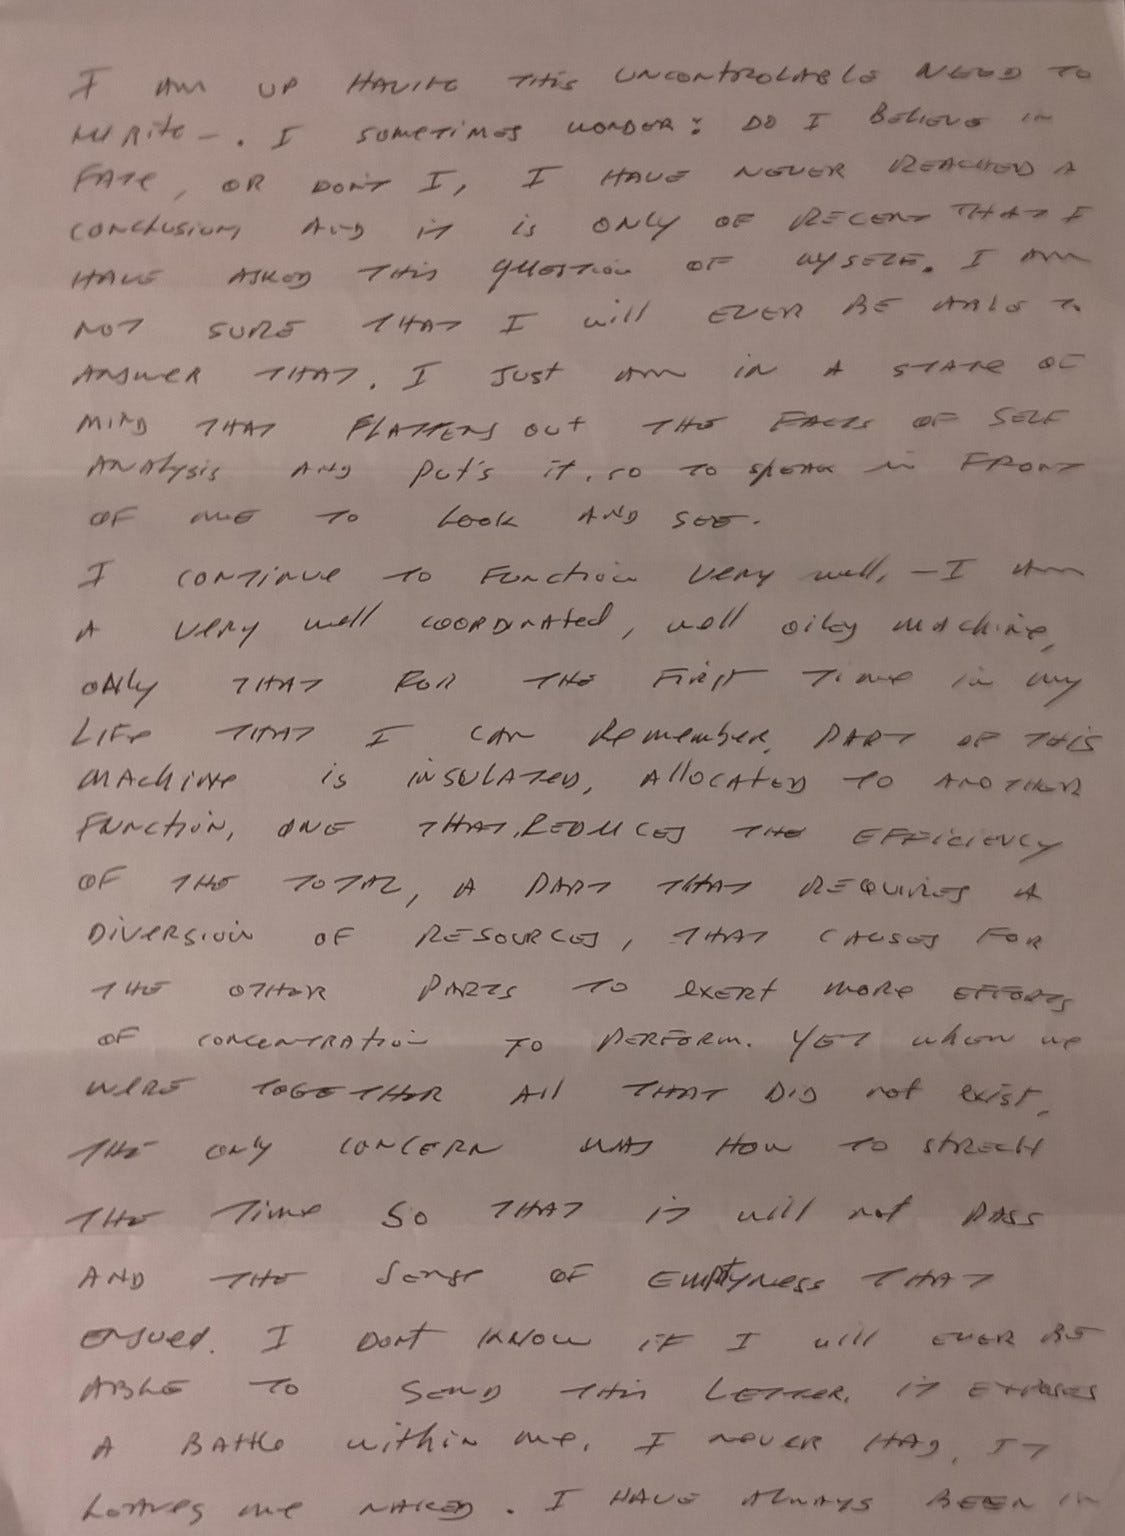 I AM UP HAVING THIS UNCONTROLABLE NEED TO
WRITE -. I SOMETIMES WONDER: DO I BELIEVE IN
FATE, OR DON'T I, I HAVE NEVER REACHED A
CONCLUSIUM AND IT IS ONLY OF RECENT THAT I
HAVE ASKED THIS QUESTION OF MYSELF. I AM
NOT SURE THAT I will EVER BE ABLE TO
ANSWER THAT. I JUST AM IN A STATE OF
MIND THAT FLATTENS OUT THE FACTS OF SELF
ANALYSIS AND PUT'S IT, SO TO SPEAK IN FRONT
OF ME TO LOOK AND SEE.
I CONTINUE TO FUNCTION VERY well, - I AM
A VERY well COORDINATED, well oiley MACHINE,
ONLY THAT FOR THE FIRST TIME IN MY
LIFE THAT I CAN REMEMBER, PART OF THIS
MACHINE is INSULATED, AllOCATED TO ANOTHER
FUNCTION, ONE THAT, REDUCES THE EFFICIENCY
OF THE TOTAL, A PART THAT REQUIRES A
DIVERSION OF RESOURCES, THAT CAUSES FOR
THE OTHER PARTS TO EXERT MORE EFFORTS
OF CONCENTRATION TO PERFORM. YET WHEN WE
WERE TOGETHER All THAT DID not exist,
THE ONLY CONCERN WAS HOW TO STRECH
THE TIME SO THAT IT will not PASS
AND THE SENSE OF EMPTYNESS THAT
ENSUED. I DONT KNOW IF I will EVER BE
ABLE TO SEND THIS LETTER, IT EXPOSES
A BATTLE within me. I NEVER HAD, IT
LEAVES me NAKED. I HAVE ALWAYS BEEN IN